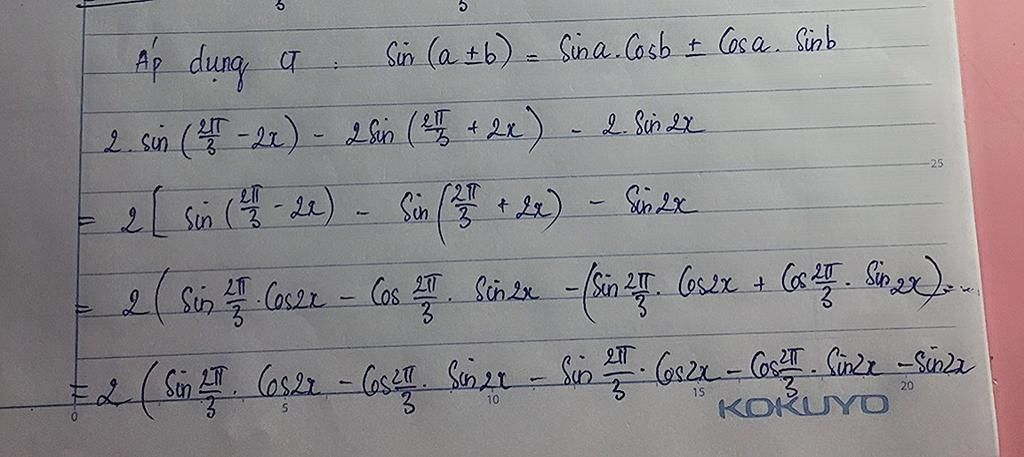 Áp dụng CT : Sin (a ± b) = Sina. Cosb ± Cosa. Sinb
2. sin (2π/3 - 2x) - 2 Sin (2π/3 + 2x) - 2. Sin 2x
25
= 2 [ sin (2π/3 - 2x) - Sin (2π/3 + 2x) - Sin 2x
= 2 ( Sin 2π/3 . Cos2x - Cos 2π/3 . Sin 2x - (Sin 2π/3 . Cos2x + Cos 2π/3 . Sin 2x) - ...
= 2 ( Sin 2π/3 . Cos2x - Cos 2π/3 . Sin 2x - Sin 2π/3 . Cos2x - Cos 2π/3 . Sin2x - Sin2x
0 5 10 15 20
KOKUYO